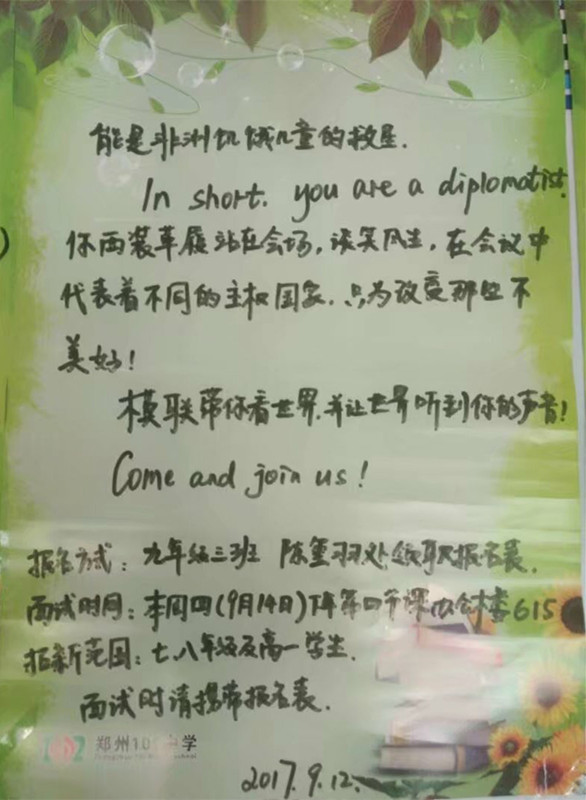 能是非洲饥饿儿童的救星.
In short. you are a diplomatist.
你西装革履站在会场,谈笑风生,在会议中
代表着不同的主权国家.只为改变那些不
美好!
模联带你看世界,并让世界听到你的声音!
Come and join us!
报名方式:九年级三班 陈 羽处领取报名表.
面试时间:本周四(9月14日)下午第四节课办公楼615
招新范围:七.八年级及高一学生.
面试时请携带报名表.
郑州10 中学
2017.9.12.